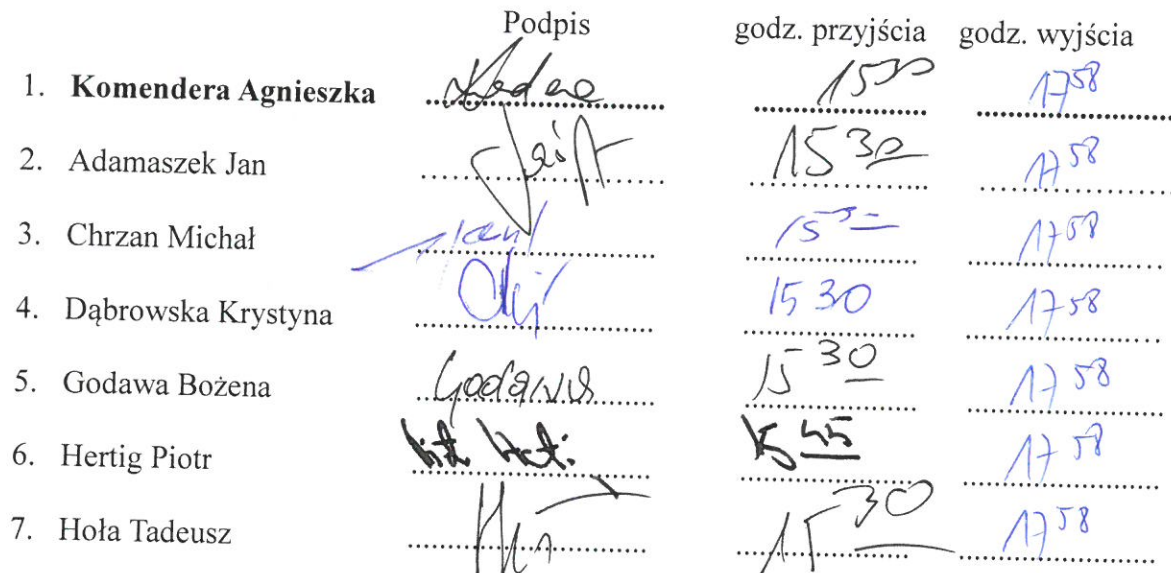 Podpis godz. przyjścia godz. wyjścia
1. Komendera Agnieszka 15 30 17 58
2. Adamaszek Jan 15 30 17 58
3. Chrzan Michał 15 17 58
4. Dąbrowska Krystyna 15 30 17 58
5. Godawa Bożena Godawa 15 30 17 58
6. Hertig Piotr 15 45 17 58
7. Hoła Tadeusz 15 30 17 58